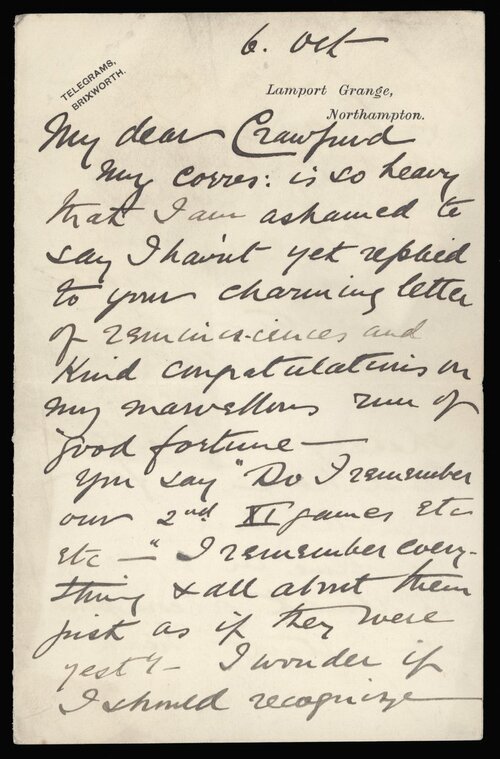 6. Oct
TELEGRAMS,
BRIXWORTH.
Lamport Grange,
Northampton.
My dear Crawfurd
My corres: is so heavy
that I am ashamed to
say I havn't yet replied
to your charming letter
of reminiscences and
kind congratulations on
my marvellous run of
good fortune —
You say "Do I remember
our 2nd XI games etc
etc —" I remember every-
thing & all about them
just as if they were
yesty — I wonder if
I should recognize